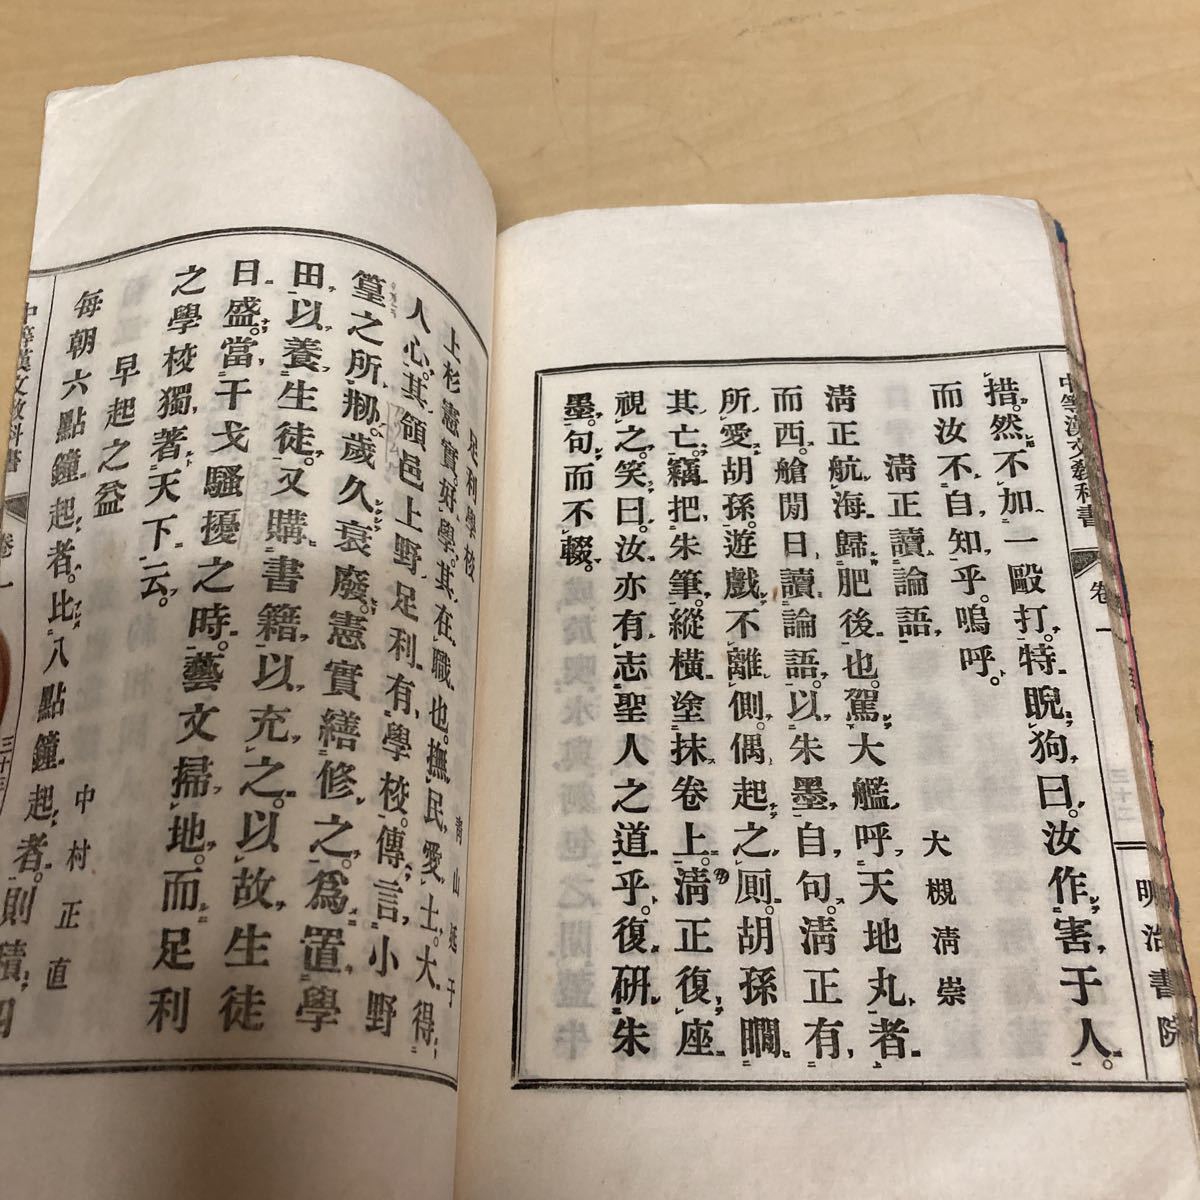 中等漢文教科書 卷一 三十二 明治書院
措。然不加一毆打。特睨狗曰。汝作害于人。
而汝不自知乎。嗚呼。
清正讀論語 大槻清崇
清正航海歸肥後也。駕大艦呼天地丸者
而西。艙閒日讀論語。以朱墨自句。清正有
所愛胡孫。遊戲不離側。偶起之厠。胡孫瞯
其亡。竊把朱筆。縱橫塗抹卷上。清正復座
視之。笑曰。汝亦有志聖人之道乎。復研朱
墨。句而不輟。
足利學校 青山延于
上杉憲實。好學。其在職也。撫民愛士。大得
人心。其領邑上野足利有學校。傳言小野
篁之所剏。歲久衰廢。憲實繕修之。爲置學
田。以養生徒。又購書籍以充之。以故生徒
日盛。當干戈騷擾之時。藝文掃地。而足利
之學校獨著天下云。
早起之益 中村正直
每朝六點鐘起者。比八點鐘起者。則積四
中等漢文教科書 卷一 三十三